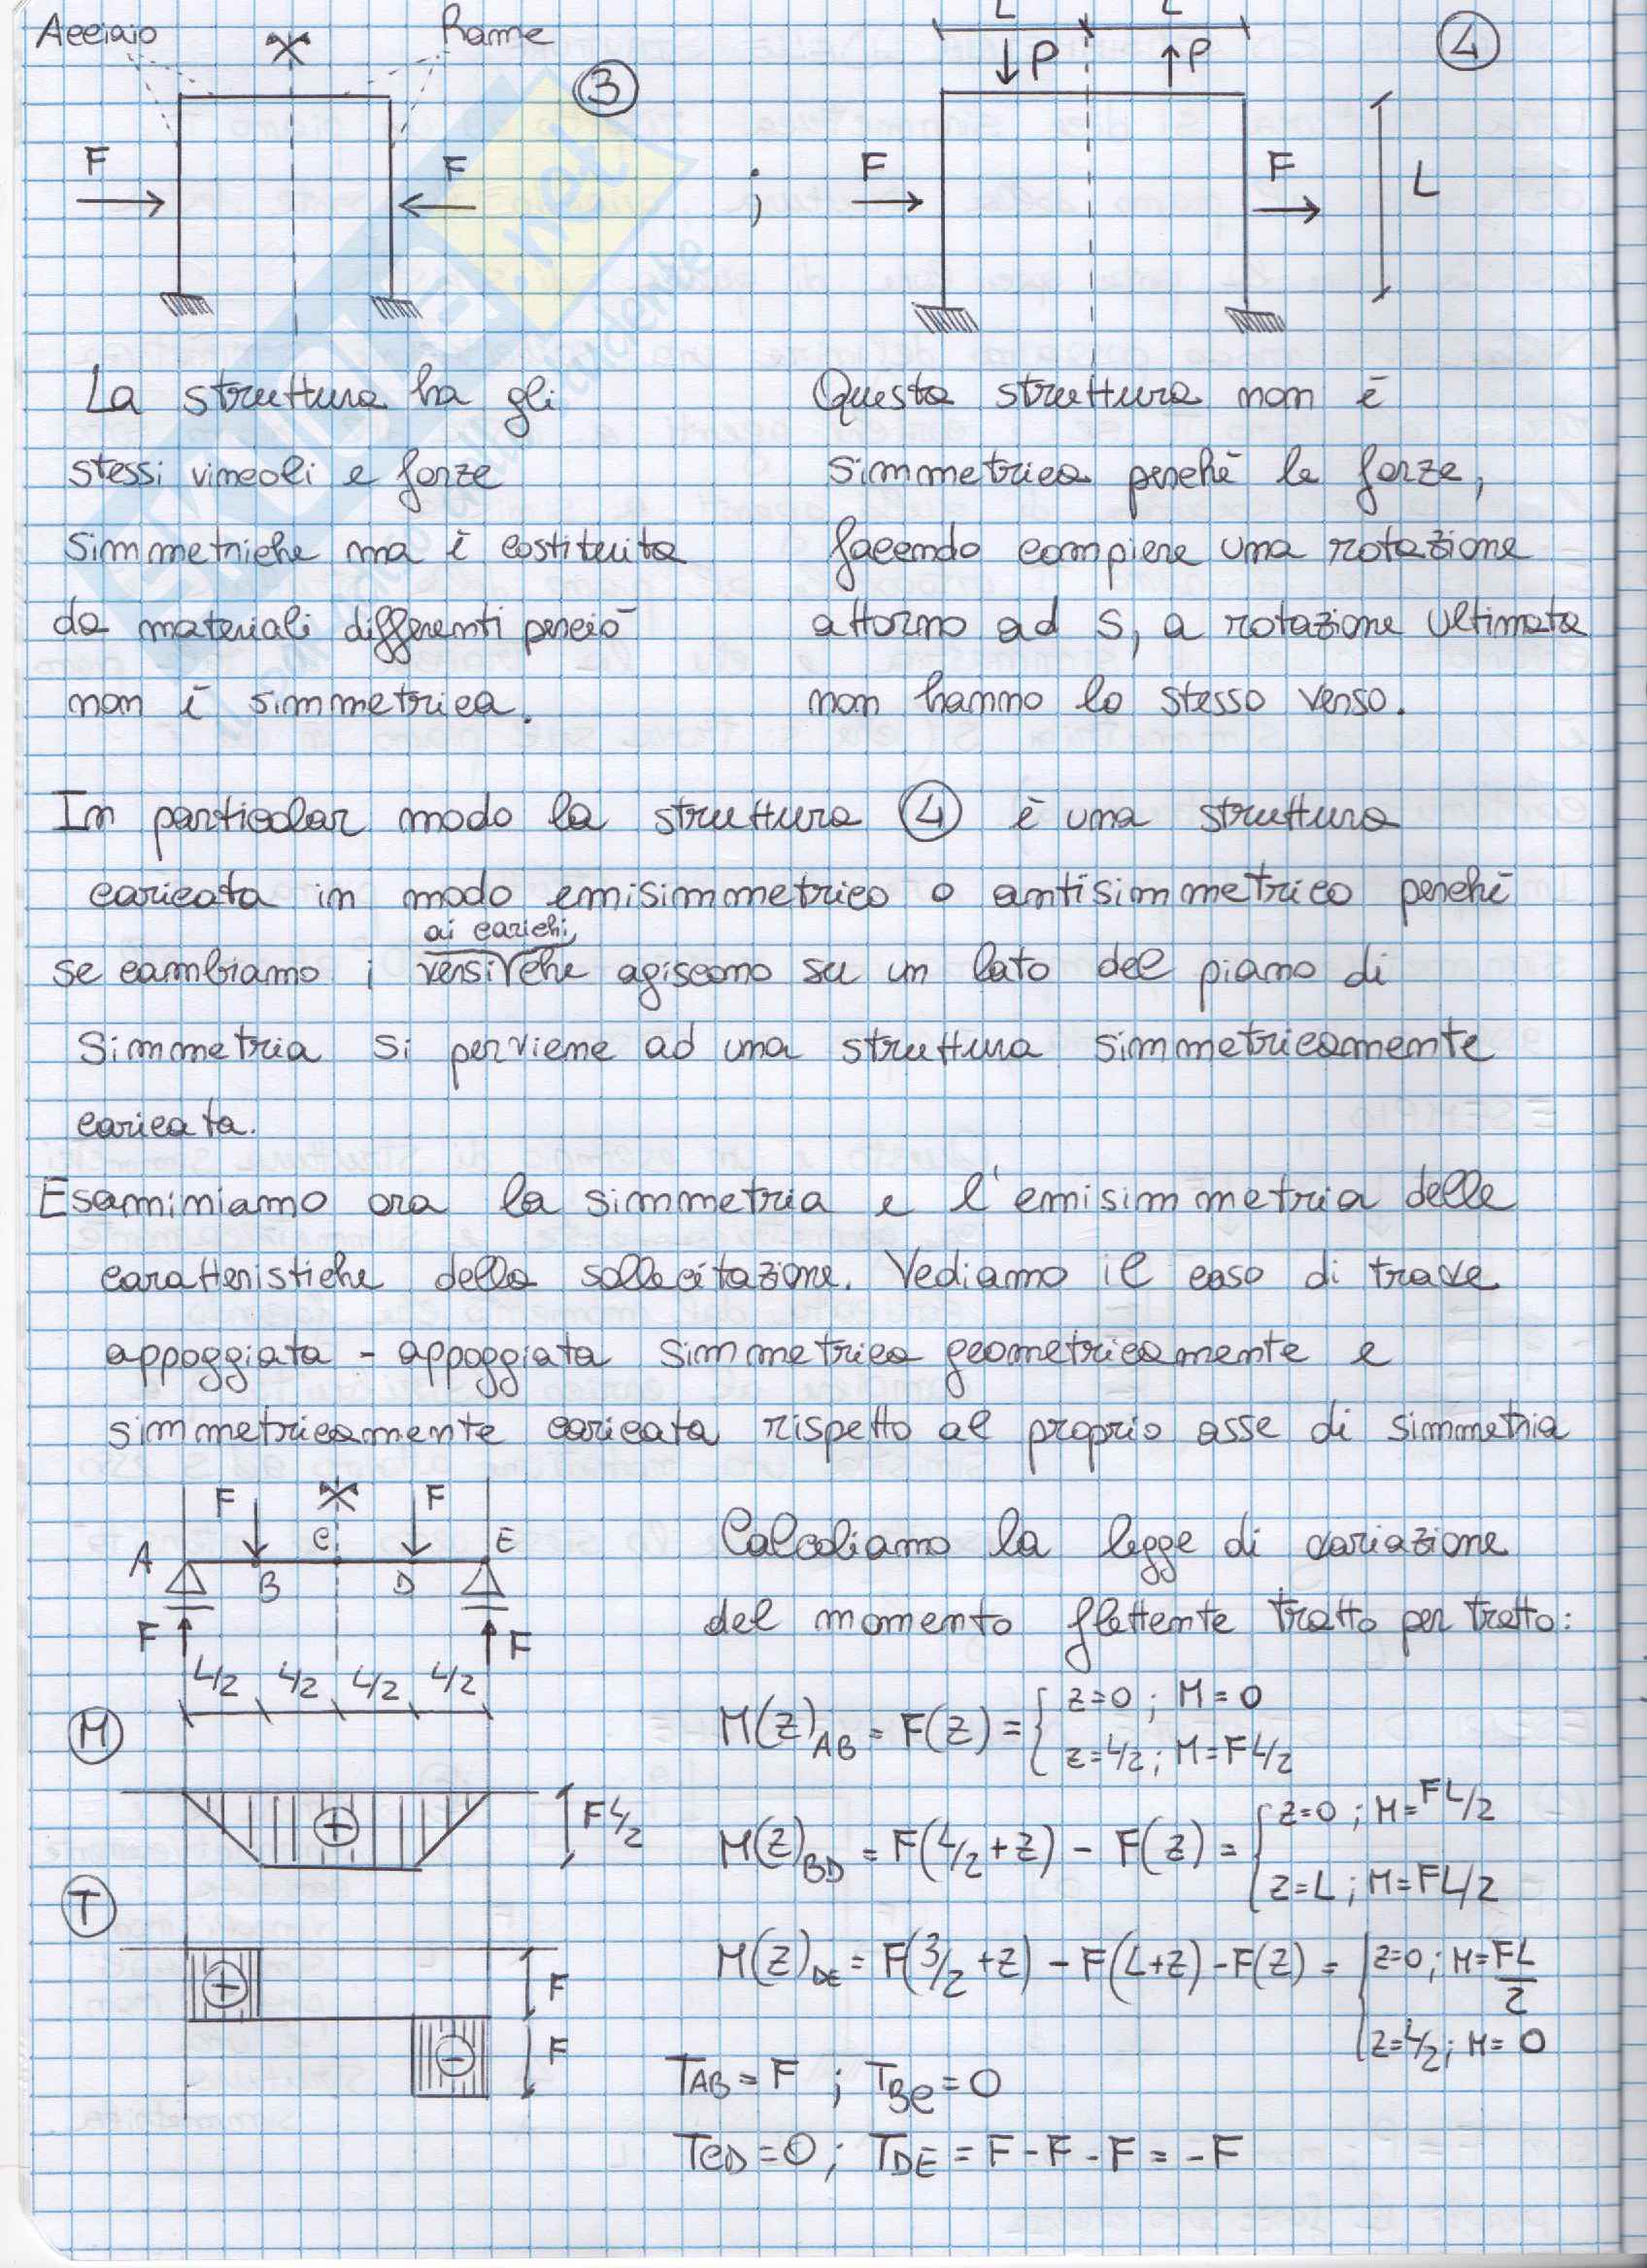 Acciaio Rame
L L
P P
3 4
F F ; F F L
La struttura ha gli
stessi vincoli e forze
simmetriche ma è costituita
da materiali differenti perciò
non è simmetrica.
Questa struttura non è
simmetrica perchè le forze,
facendo compiere una rotazione
attorno ad S, a rotazione ultimata
non hanno lo stesso verso.
In particolar modo la struttura 4 è una struttura
caricata in modo emisimmetrico o antisimmetrico perchè
se cambiamo i versi ai carichi, che agiscono su un lato del piano di
simmetria si perviene ad una struttura simmetricamente
caricata.
Esaminiamo ora la simmetria e l'emisimmetria delle
caratteristiche della sollecitazione. Vediamo il caso di trave
appoggiata - appoggiata simmetrica geometricamente e
simmetricamente caricata rispetto al proprio asse di simmetria
F F
A C E
B D
F F
L/2 L/2 L/2 L/2
M
+ FL/2
T
+ F
- F
Calcoliamo la legge di variazione
del momento flettente tratto per tratto:
M(z)AB = F(z) = { z=0 ; M=0
z=L/2 ; M=FL/2
M(z)BD = F(L/2+z) - F(z) = { z=0 ; M=FL/2
z=L ; M=FL/2
M(z)DE = F(3/2+z) - F(L+z) - F(z) = { z=0 ; M=FL/2
z=L/2 ; M=0
TAB = F ; TBC = 0
TCD = 0 ; TDE = F - F - F = -F